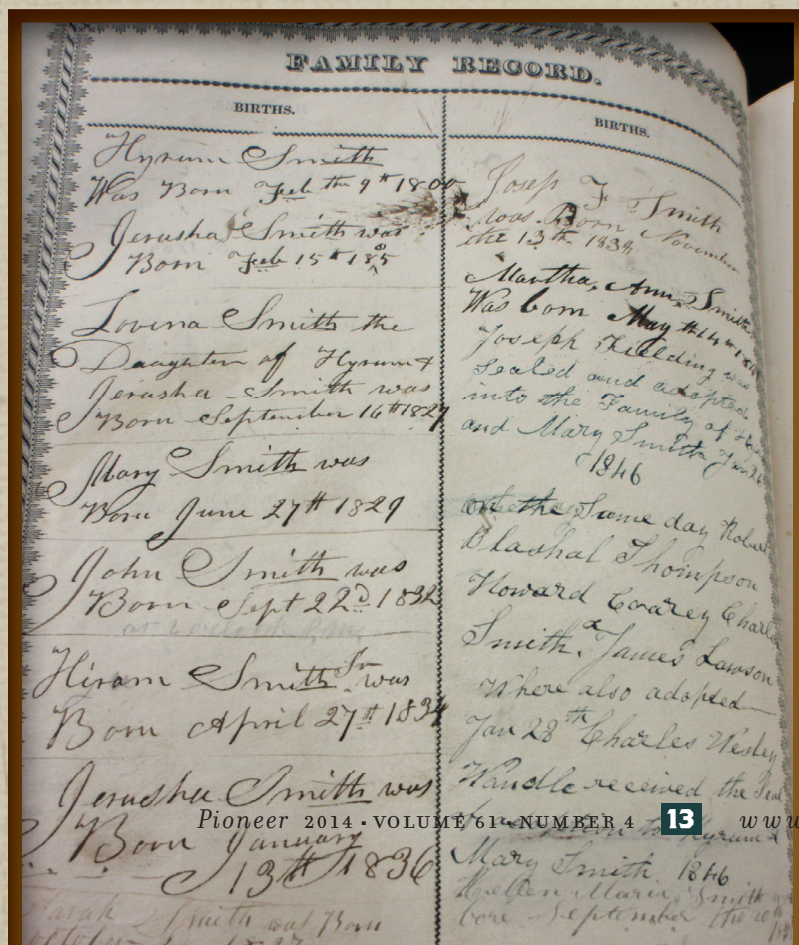 FAMILY RECORD.
BIRTHS.
Hyrum Smith
Was Born Feb th 9th 1800
Jerusha Smith was
Born Feb 15th 185
Lovina Smith the
Daughter of Hyrum &
Jerusha Smith was
Born September 16th 1827
Mary Smith was
Born June 27th 1829
John Smith was
Born Sept 22d 1832
Hiram Smith Jr was
Born April 27th 1834
Jerusha Smith was
Born January
13th 1836
Sarah Smith was Born
October
BIRTHS.
Joseph F Smith
was Born November
the 13th 1838
Martha, Ann, Smith
Was born May th 14
Joseph Fielding was
Sealed and adopted
into the Family of
and Mary Smith Jan 26
1846
on the Same day Robert
Blashal Thompson
Howard Coarey Charles
Smith & James Lawson
Where also adopted
Jan 28th Charles Wesley
Wandle received the Seal
to Hyrum &
Mary Smith 1846
Marie Smith
September the
Pioneer 2014 • VOLUME 61 • NUMBER 4 13 www